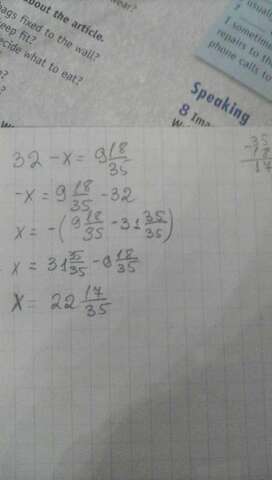 wear?
about the article.
bags fixed to the wall?
keep fit?
decide what to eat?
?
?
usual
I sometim
repairs to th
phone calls to
Speaking
8 Ima
32 - x = 9 18/35
-x = 9 18/35 - 32
x = -(9 18/35 - 31 35/35)
x = 31 35/35 - 9 18/35
x = 22 17/35
35
- 18
17